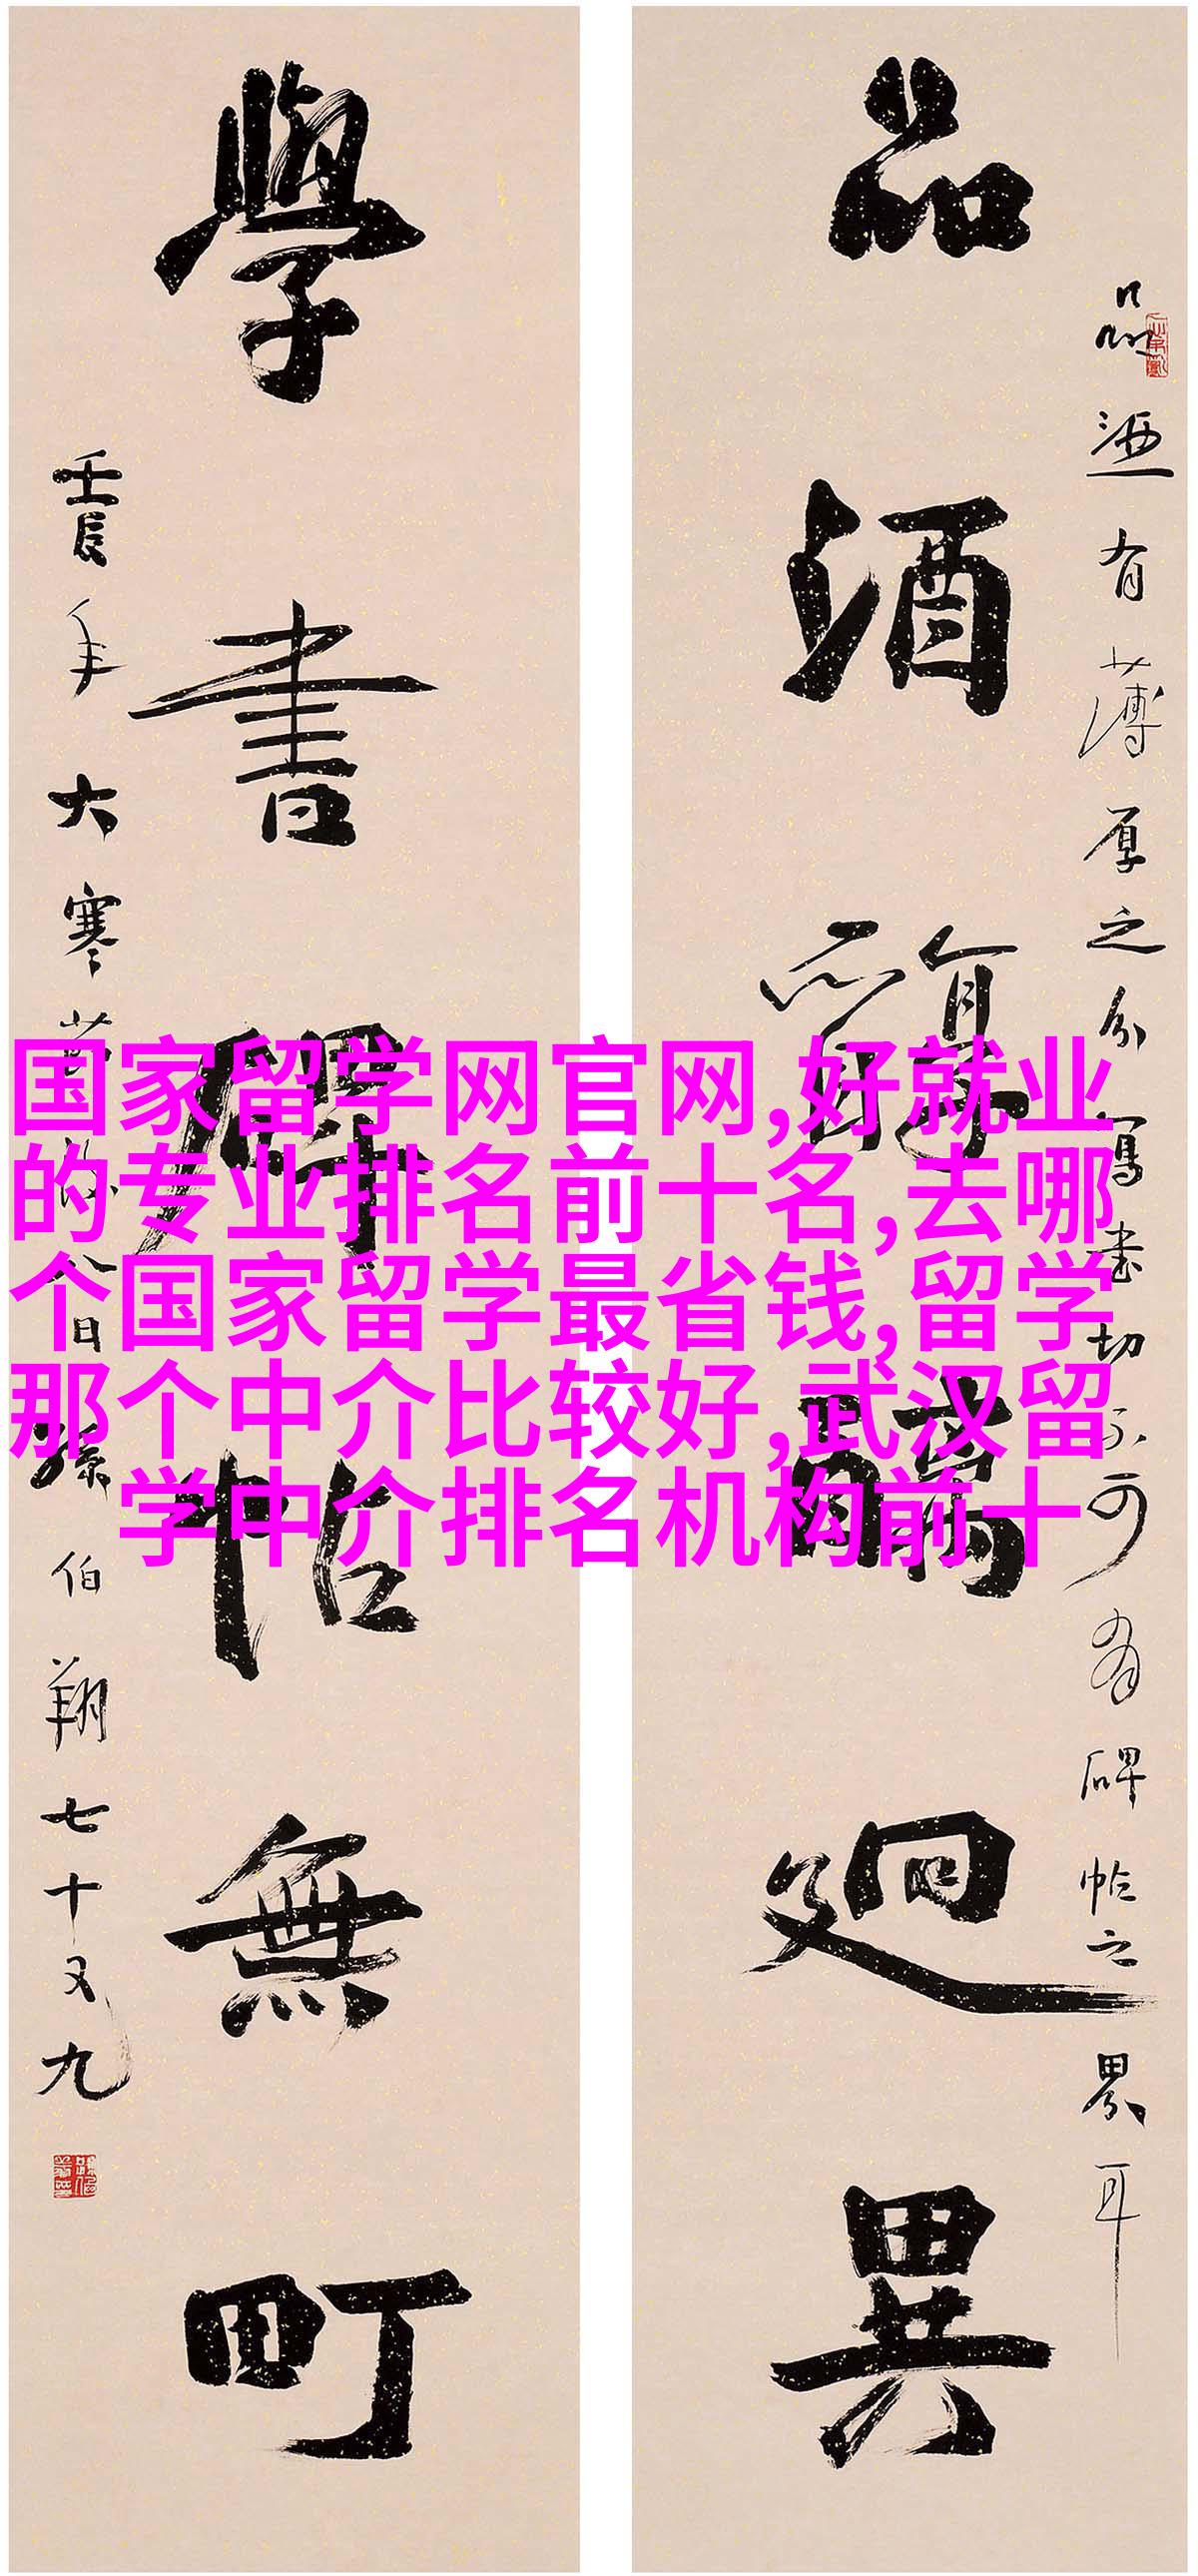 品酒顛醨迴異
品酒有薄厚之分寫書切不可有碑帖之界耳
學書碑帖無町
壬辰年大寒前改八日孫伯翔七十又九
国家留学网官网,好就业
的专业排名前十名,去哪
个国家留学最省钱,留学
那个中介比较好,武汉留
学中介排名机构前十